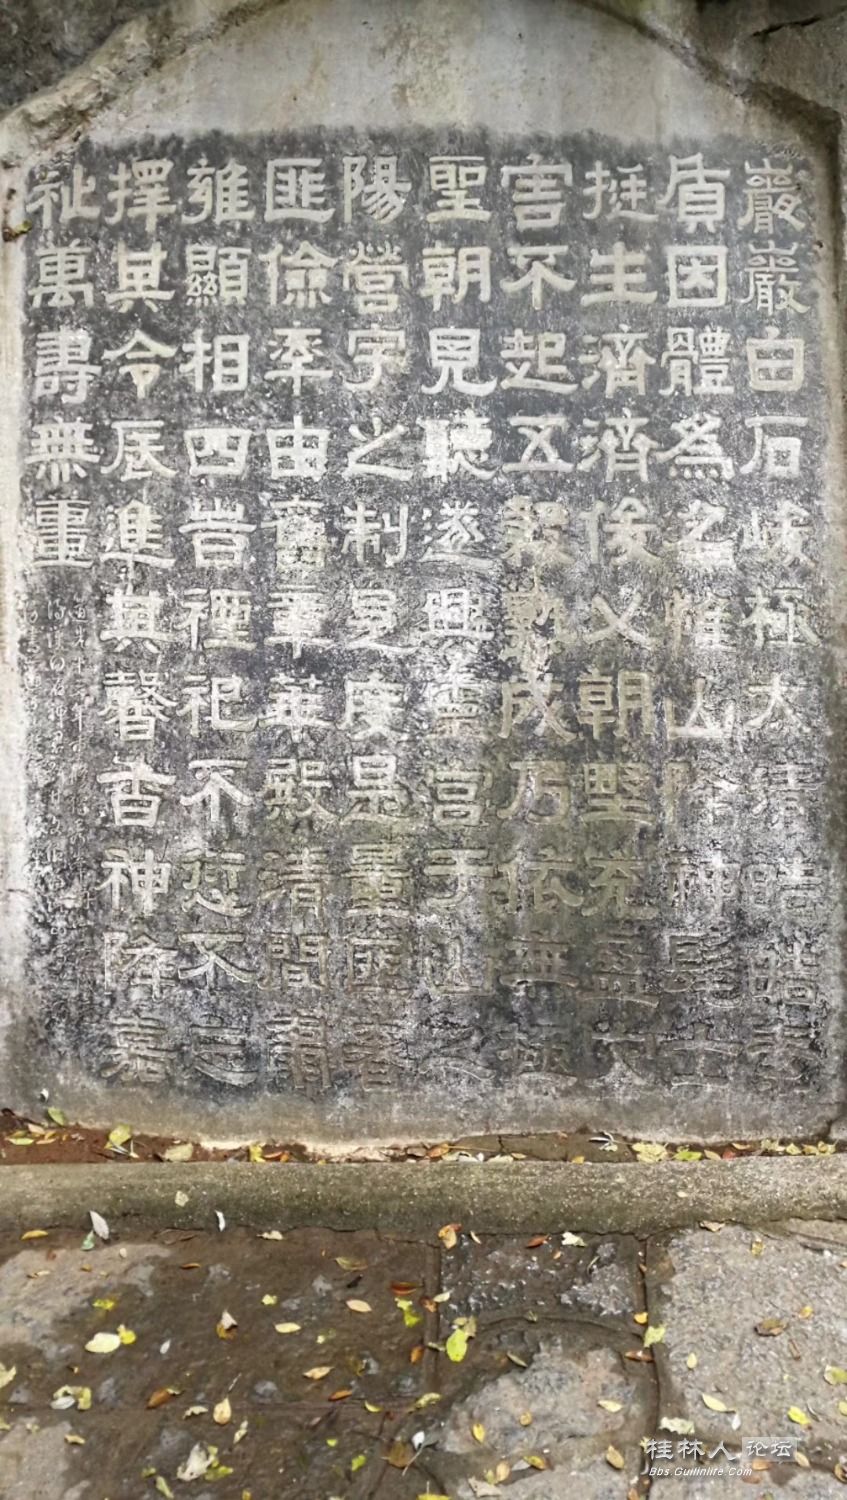 巖巖白石峻極太清皓皓素
質因體為名惟山降神髦士
挺生濟濟俊乂朝墅充盈灾
害不起五穀熟成乃依無極
聖朝見聽遂興靈宮于山之
陽營宇之制是度是量匪奢
匪儉率由舊章華殿清閒肅
雍顯相四旹禋祀不愆不忘
擇其令辰進其馨香神降嘉
祉萬壽無畺
桂林人论坛
Bbs.Guilinlife.Com